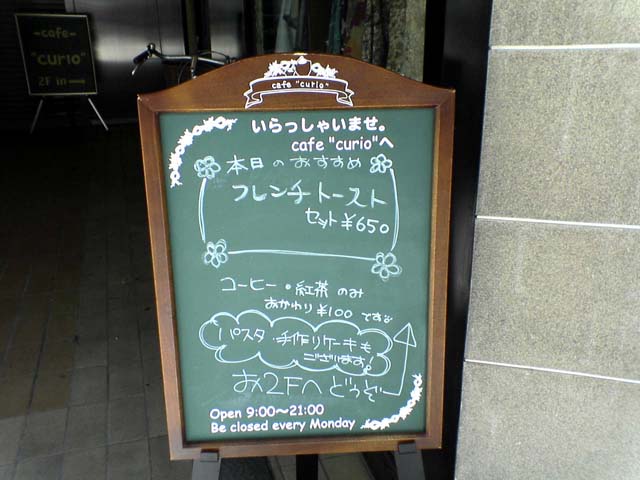 -cafe-
"curio"
2F in→
cafe "curio"
いらっしゃいませ。
cafe "curio"へ
本日のおすすめ
フレンチトースト
セット¥650
コーヒー・紅茶 のみ
おかわり¥100 です
パスタ・手作りケーキも
ございます!
お2Fへ どうぞ
Open 9:00～21:00
Be closed every Monday